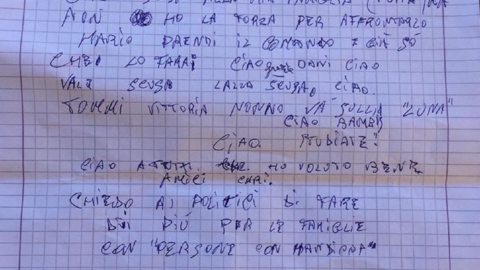 NON HO LA FORZA PER AFFRONTARLO
MARIO PRENDI IL COMANDO E GIÀ SO
CHE LO FARAI CIAO DANI CIAO
VALE SCUSA LALLA SCUSA, CIAO.
TOMMI VITTORIA NONNO VÀ SULLA "LUNA"
CIAO BAMBI
CIAO STUDIATE!
CIAO A TUTTI. HO VOLUTO BENE
AMICI CARI.
CHIEDO AI POLITICI DI FARE
DI PIÙ PER LE FAMIGLIE
CON "PERSONE CON HANDICAP"